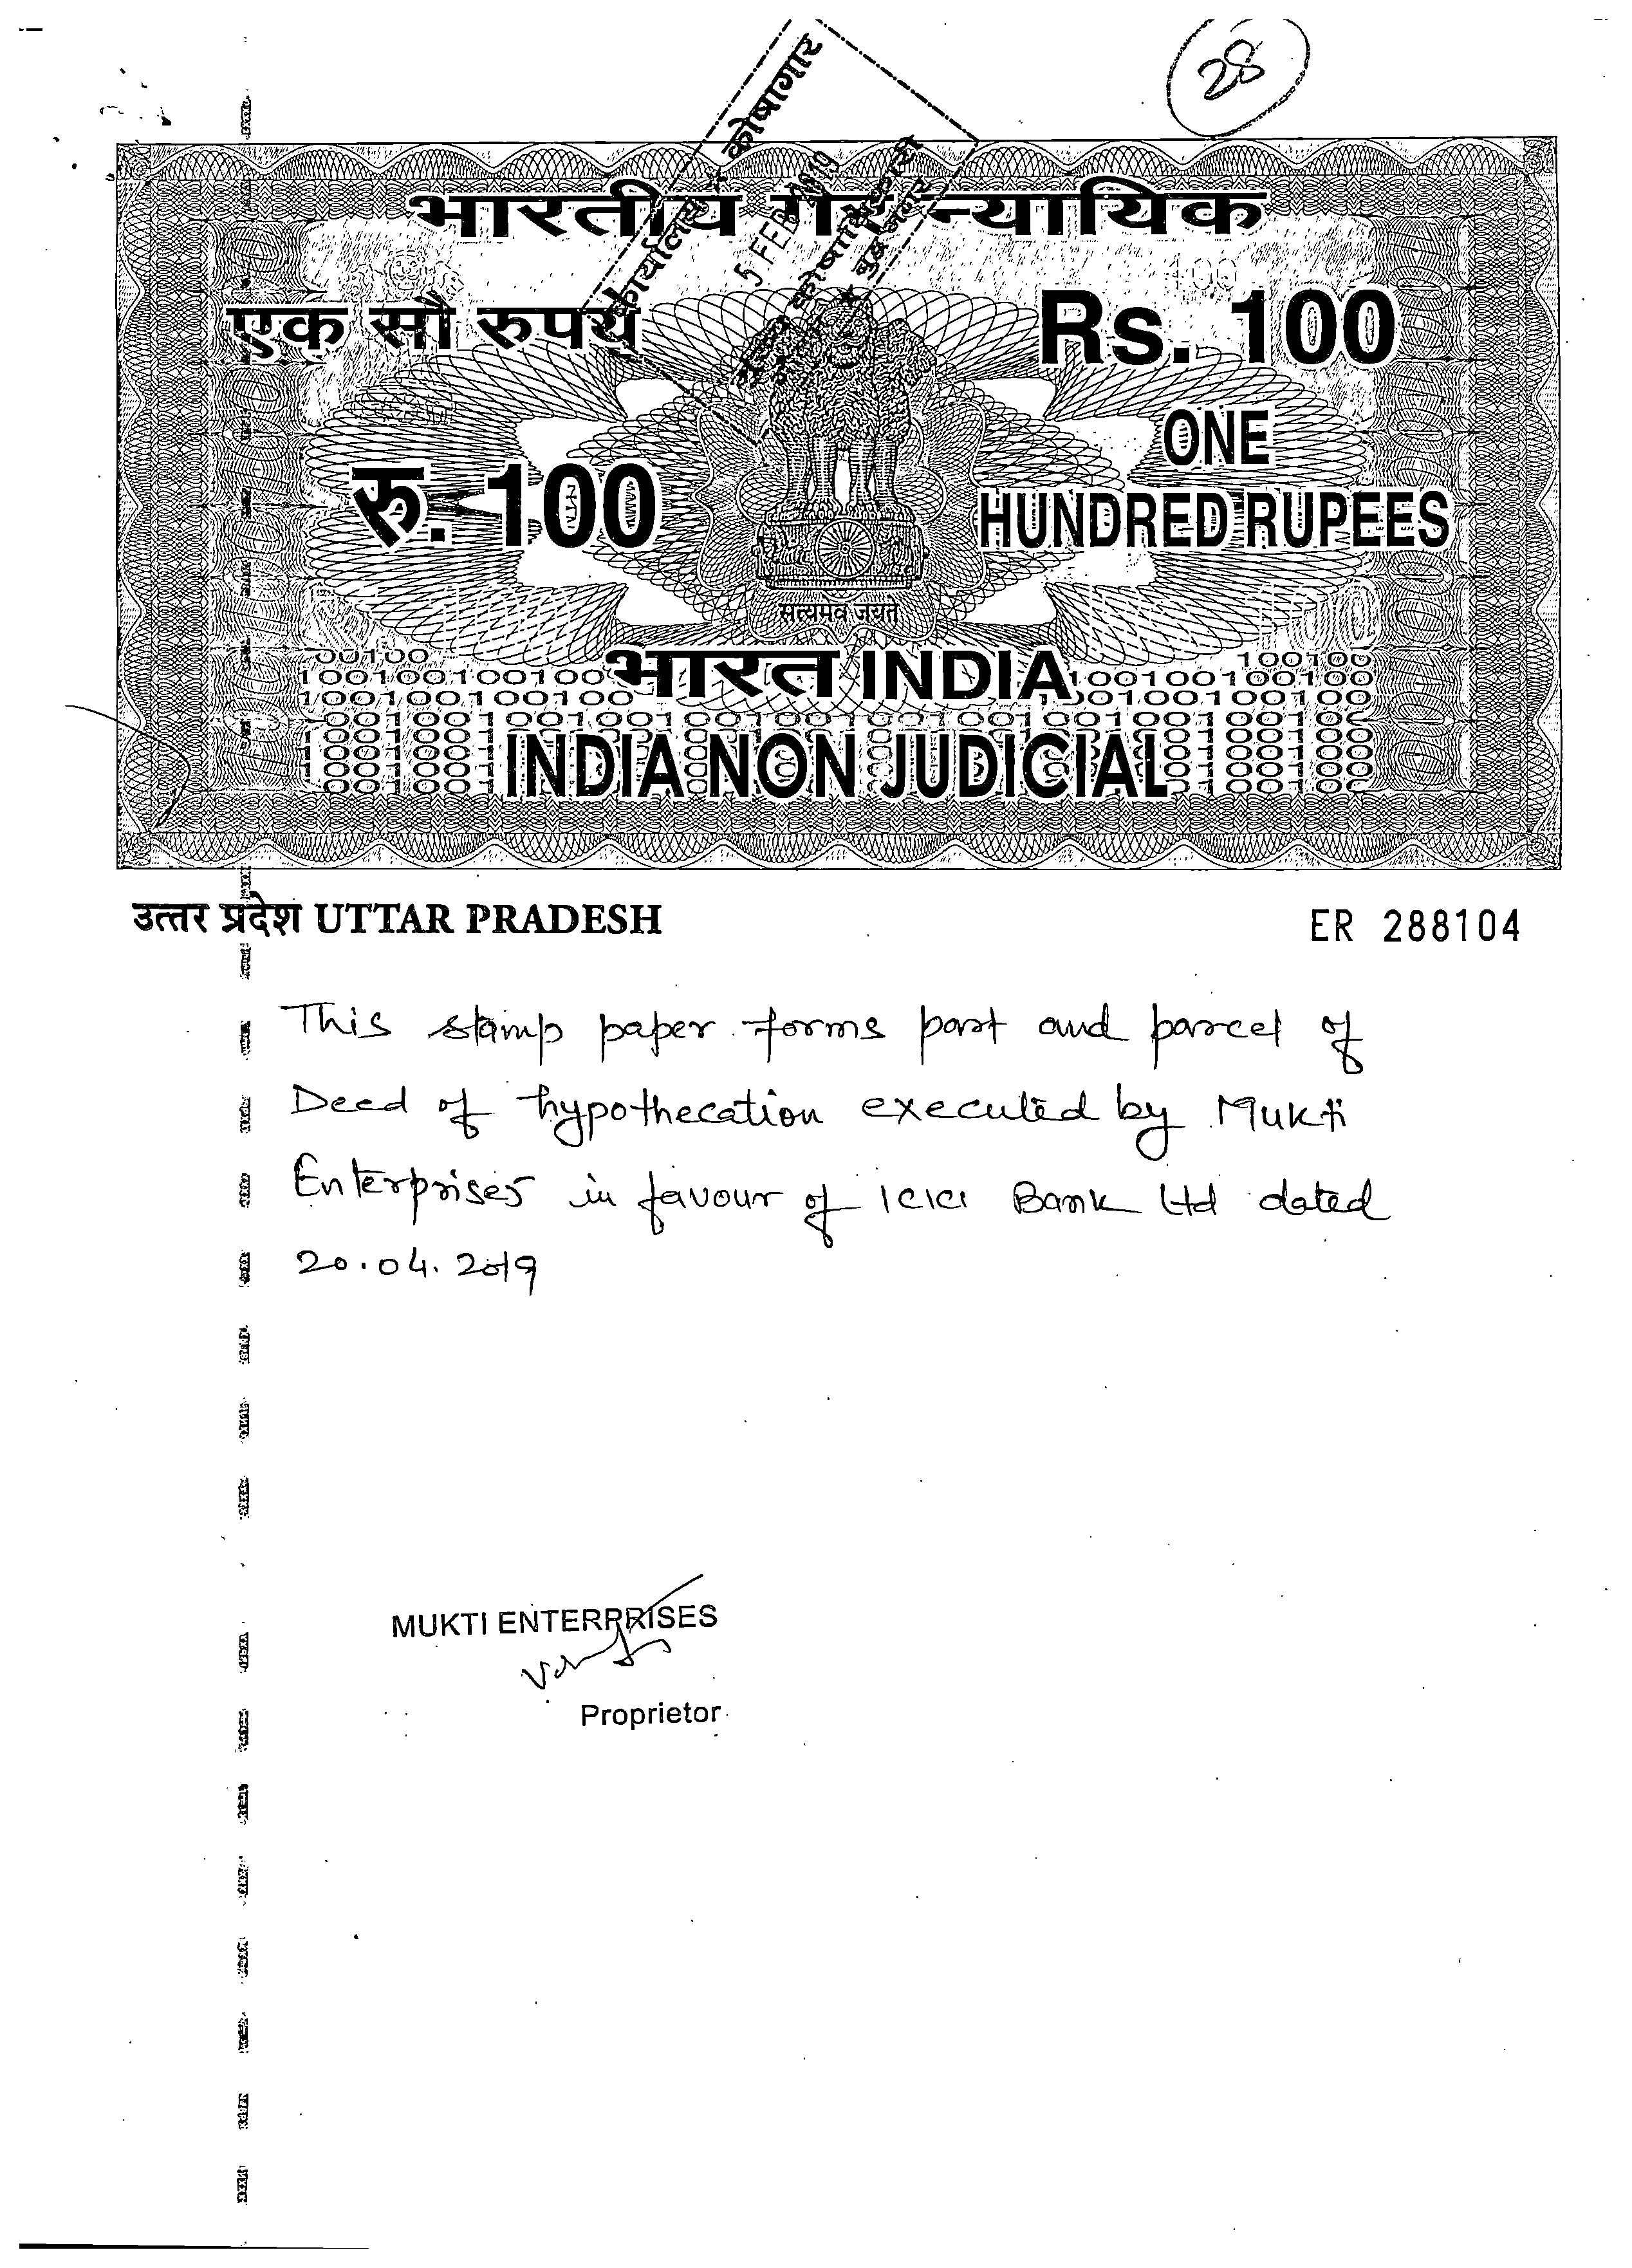 28
कार्यालय ★ कोषागार
5 FEB 2019
मुख्य कोषाधिकारी
भारतीय गैर न्यायिक
एक सौ रुपये
Rs. 100
रु. 100
ONE
HUNDRED RUPEES
सत्यमेव जयते
भारत INDIA
INDIA NON JUDICIAL
उत्तर प्रदेश UTTAR PRADESH
ER 288104
This stamp paper forms part and parcel of
Deed of hypothecation executed by Mukti
Enterprises in favour of ICICI Bank Ltd dated
20.04.2019
MUKTI ENTERPRISES
Proprietor